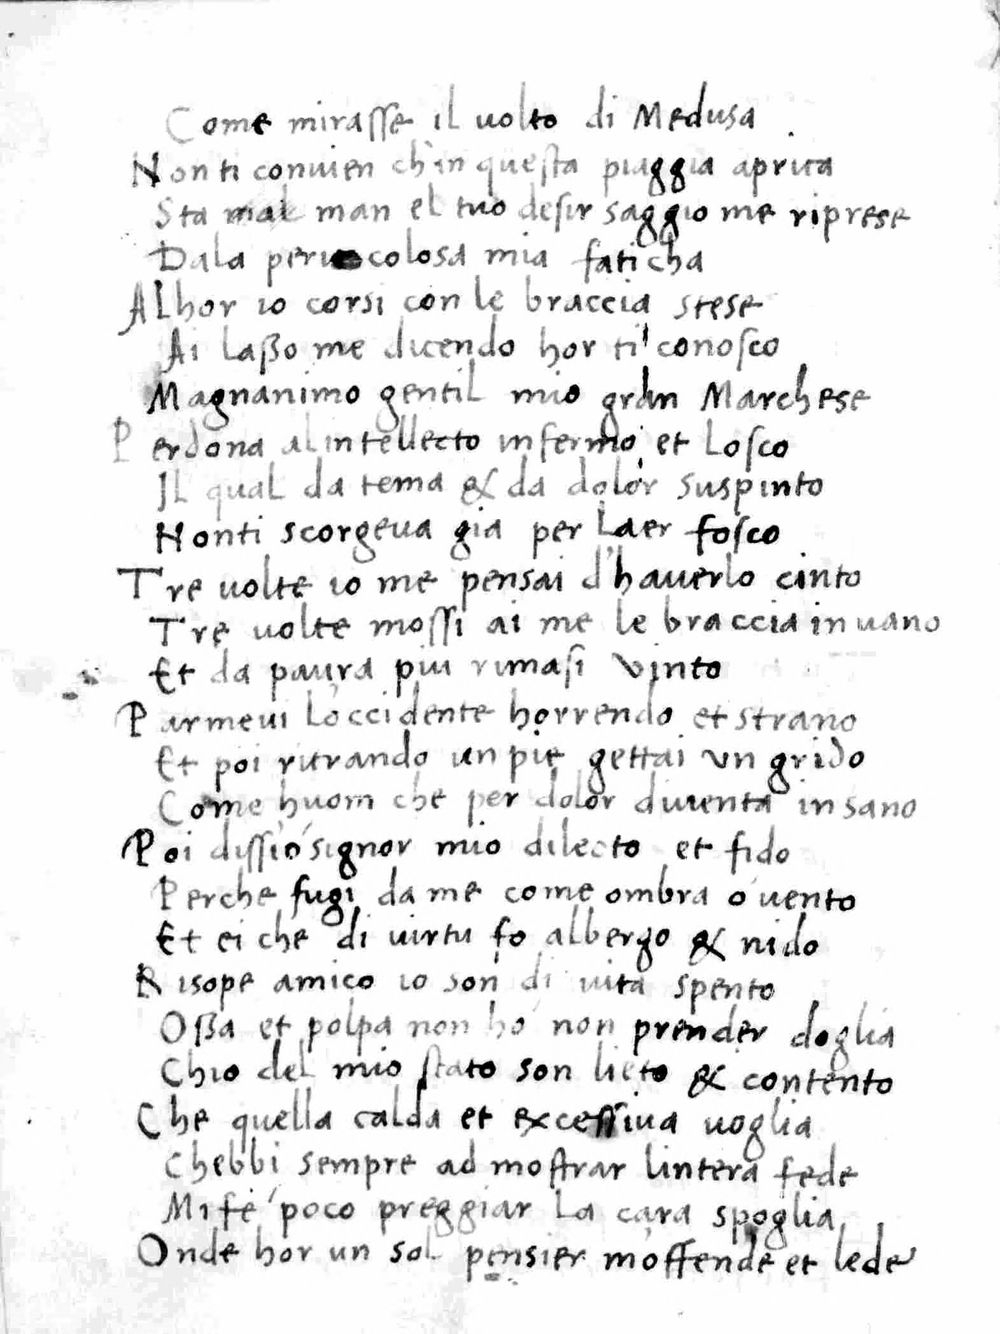 Come mirasse il uolto di Medusa
Non ti conuien ch'in questa piaggia aprica
Sta mal man el tuo desir saggio me riprese
Dala pericolosa mia faticha
Alhor io corsi con le braccia stese
Ai laßo me dicendo hor ti conosco
Magnanimo gentil mio gran Marchese
Perdona al intellecto infermo et Losco
Il qual da tema & da dolor suspinto
Nonti scorgeua gia per Laer fosco
Tre uolte io me pensai d'hauerlo cinto
Tre uolte mossi ai me le braccia in uano
Et da paura piu rimasi vinto
Parmeui Loccidente horrendo et strano
Et poi ritrando un pie gettai un grido
Come huom che per dolor diuenta insano
Poi dissio signor mio dilecto et fido
Perche fugi da me come ombra o uento
Et ei che di uirtu fo albergo & nido
Risope amico io son di uita spento
Oßa et polpa non ho non prender doglia
Chio del mio stato son lieto & contento
Che quella calda et excessiua uoglia
Chebbi sempre ad mostrar lintera fede
Mi fe poco preggiar La cara spoglia
Onde hor un sol pensier m'offende et lede